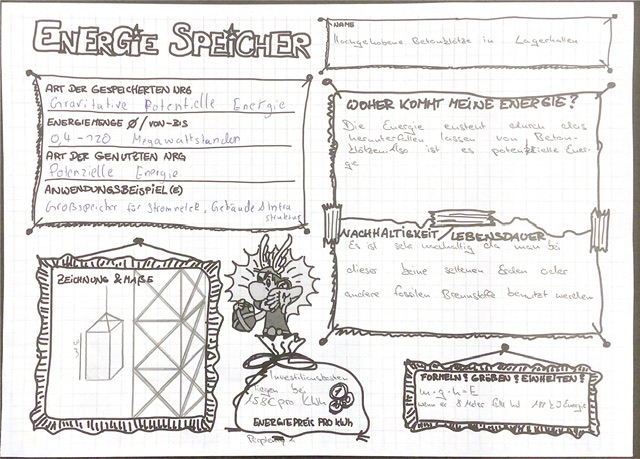 ENERGIE SPEICHER
NAME
Hochgehobene Betonblötze in Lagerhallen
ART DER GESPEICHERTEN NRG
Gravitative Potentielle Energie
ENERGIEMENGE Ø/VON-BIS
0,4 - 120 Megawattstunden
ART DER GENUTZTEN NRG
Potenzielle Energie
ANWENDUNGSBEISPIEL(E)
Großspeicher für Stromnetze, Gebäude & Infra
struktur
WOHER KOMMT MEINE ENERGIE?
Die Energie ensteht durch das
herunterfallen lassen von Beton-
klötzen. Also ist es potenzielle Ener-
ge
NACHHALTIGKEIT/LEBENSDAUER
Es ist sehr nachhaltig da man bei
dieser keine seltenen Erden oder
andere fossilen Brennstoffe benutzt werden
ZEICHNUNG & MAẞE
Investitionskosten
liegen bei
158€ pro KWh
ENERGIEPREIS PRO kWh
FORMELN? GRÖßEN? EINHEITEN?
m · g · h = E
wenn er 8 Meter fällt hat Energie